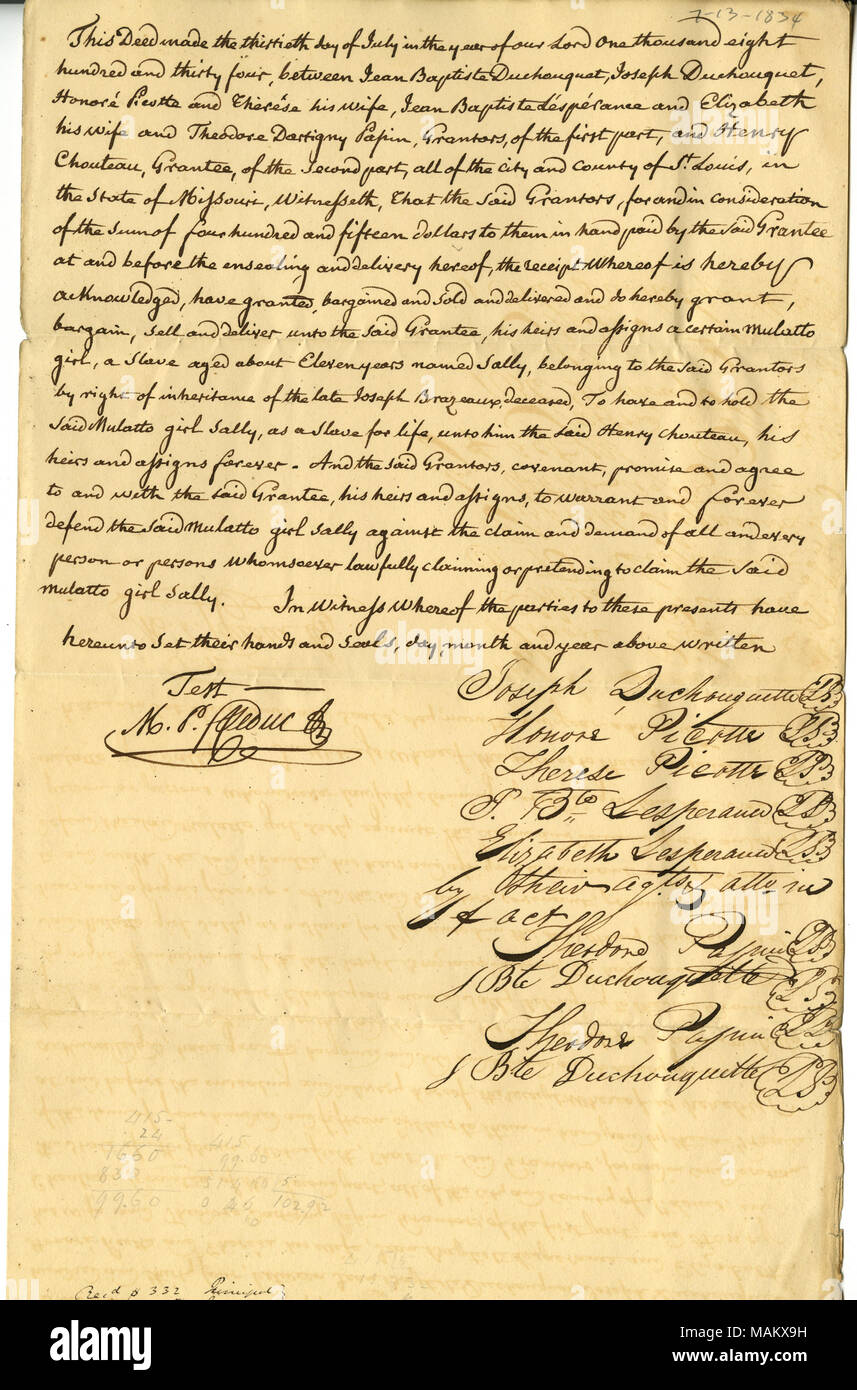 7-13-1834
This Deed made the thirtieth day of July in the year of our Lord One thousand eight
hundred and thirty four, between Jean Baptiste Duchouquet, Joseph Duchouquet,
Honoré Picotte and Thérése his wife, Jean Baptiste L'éspérance and Elizabeth
his wife and Theodore Dartigny Papin, Grantors, of the first part, and Henry
Chouteau, Grantee, of the Second part, all of the City and County of St. Louis, in
the State of Missouri, Witnesseth, that the said Grantors, for and in consideration
of the sum of four hundred and fifteen dollars to them in hand paid by the said Grantee
at and before the ensealing and delivery hereof, the receipt Whereof is hereby
acknowledged, have granted, bargained and sold and delivered and do hereby grant,
bargain, sell and deliver unto the said Grantee, his heirs and assigns a certain Mulatto
girl, a Slave aged about Eleven years named Sally, belonging to the said Grantors
by right of inheritance of the late Joseph Brazeaux, deceased, To have and to hold the
said Mulatto girl Sally, as a Slave for life, unto him the said Henry Chouteau, his
heirs and assigns forever. And the said Grantors, covenant, promise and agree
to and with the said Grantee, his heirs and assigns, to warrant and forever
defend the said Mulatto girl Sally against the claim and demand of all and every
person or persons whomsoever lawfully claiming or pretending to claim the said
Mulatto girl Sally. In Witness Whereof the parties to these presents have
hereunto set their hands and seals, day, month and year above written
Test
M. P. Leduc
Joseph Duchouquette
Honore Picotte
Therese Picotte
J. Bte Lesperance
Elizabeth Lesperance
by their agts & atto in
fact
Theodore Papin
J Bte Duchouquette
Theodore Papin
J Bte Duchouquette
415
24
1660
830
99.60
415
99.60
102.92
Rec'd $ 332 Principal
alamy
Image ID: MAKX9H
www.alamy.com